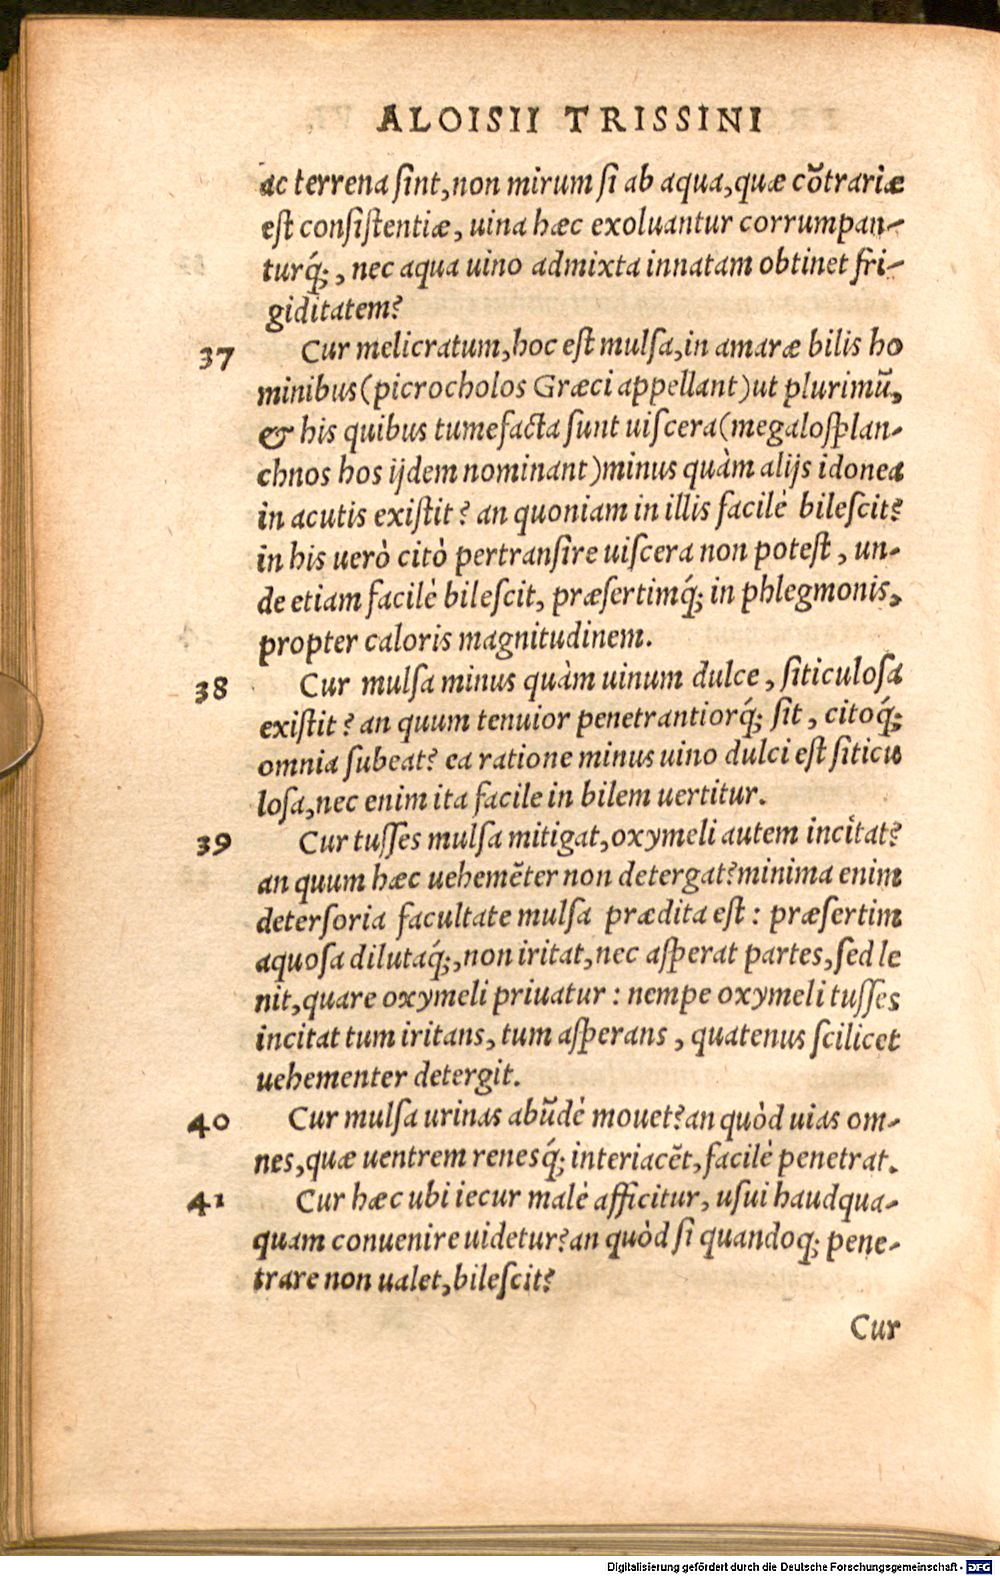 ALOISII TRISSINI
ac terrena ſint, non mirum ſi ab aqua, quæ cõtrariæ
eſt conſiſtentiæ, uina hæc exoluantur corrumpan-
turq́;, nec aqua uino admixta innatam obtinet fri-
giditatem?
37 Cur melicratum, hoc eſt mulſa, in amaræ bilis ho
minibus (picrocholos Græci appellant) ut plurimũ,
& his quibus tumefacta ſunt uiſcera (megaloſplan-
chnos hos ijdem nominant) minus quàm alijs idonea
in acutis exiſtit? an quoniam in illis facilè bileſcit?
in his uerò citò pertranſire uiſcera non poteſt, un-
de etiam facilè bileſcit, præſertimq́; in phlegmonis,
propter caloris magnitudinem.
38 Cur mulſa minus quàm uinum dulce, ſiticuloſa
exiſtit? an quum tenuior penetrantiorq́; ſit, citoq́;
omnia ſubeat? ea ratione minus uino dulci eſt ſiticu
loſa, nec enim ita facile in bilem uertitur.
39 Cur tuſſes mulſa mitigat, oxymeli autem incitat?
an quum hæc uehemẽter non detergat? minima enim
deterſoria facultate mulſa prædita eſt: præſertim
aquoſa dilutaq́;, non iritat, nec aſperat partes, ſed le
nit, quare oxymeli priuatur: nempe oxymeli tuſſes
incitat tum iritans, tum aſperans, quatenus ſcilicet
uehementer detergit.
40 Cur mulſa urinas abũdè mouet? an quòd uias om-
nes, quæ uentrem renesq́; interiacẽt, facilè penetrat.
41 Cur hæc ubi iecur malè afficitur, uſui haudqua-
quam conuenire uidetur? an quòd ſi quandoq; pene-
trare non ualet, bileſcit?
Cur
Digitalisierung gefördert durch die Deutsche Forschungsgemeinschaft - DFG